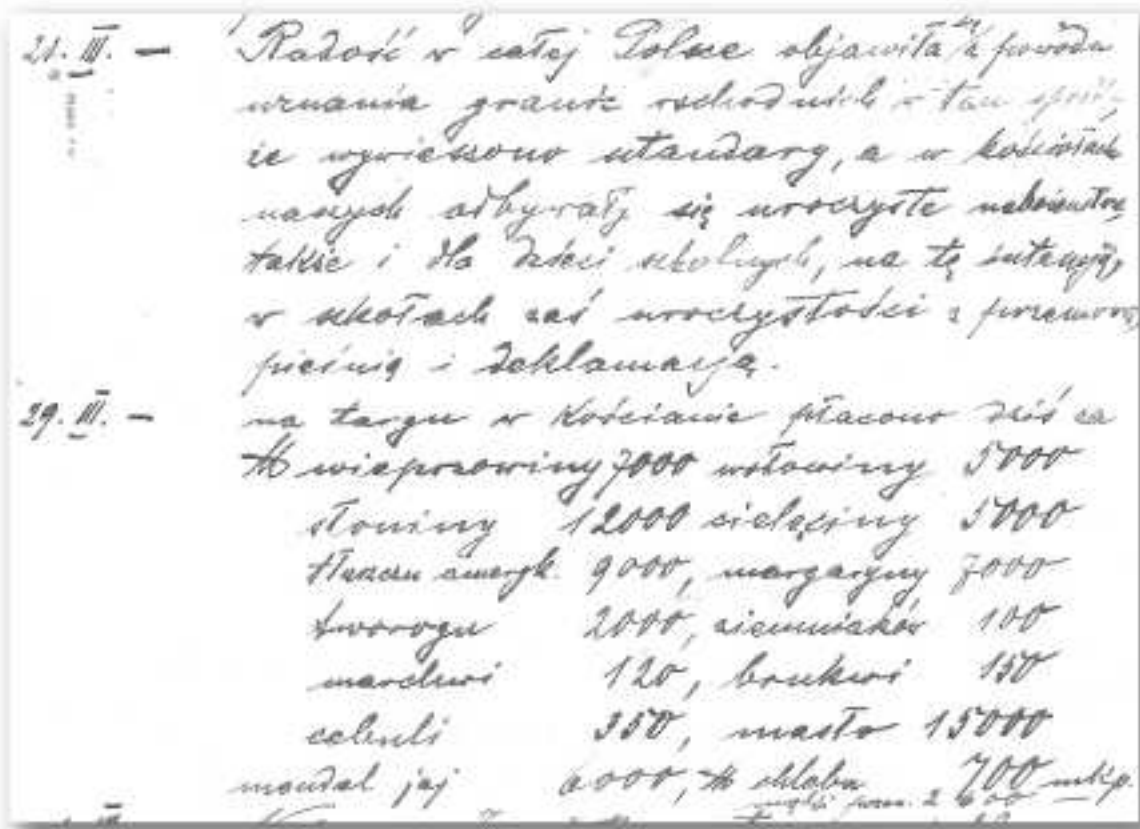 21. III. — Radość w całej Polsce objawiła się z powodu
uznania granic wschodnich w ten spos-
że wywieszono sztandary, a w kościołach
naszych odbywały się uroczyste nabożeństwa
także i dla dzieci szkolnych, na tę intencyję,
w szkołach zaś uroczystości z przemową
pieśnią i deklamacją.
29. III. — na targu w Kościanie płacono dziś za
℔ wieprzowiny 7000 wołowiny 5000
słoniny 12000 cielęciny 5000
tłuszczu ameryk. 9000, margaryny 7000
tworogu 2000, ziemniaków 100
marchwi 120, brukwi 150
cebuli 350, masło 15000
mandel jaj 6000, ℔ chleba 700 mkp.